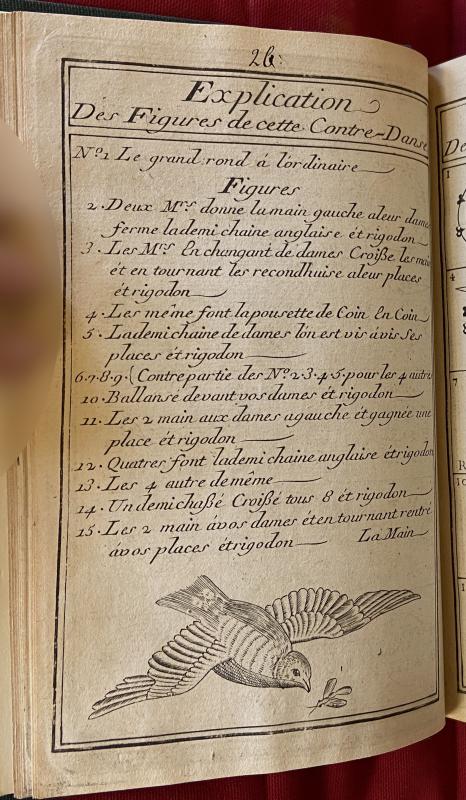 26.
Explication
Des Figures de cette Contre-Danse
Nº.1 Le grand rond á lordinaire
Figures
2. Deux Mrs donne la main gauche aleur dame
ferme lademi chaine anglaise ét rigodon
3. Les Mrs En changant de dames Croiße les main
ét en tournant les recondhuise aleur places
ét rigodon
4. Les méme font la pousette de Coin En Coin
5. Lademi chaine de dames lón est vis ávis Ses
places ét rigodon
6.7.8.9. (Contrepartie des Nº.2.3.4.5. pour les 4 autres
10. Ballansé devant vos dames ét rigodon
11. Les 2 main aux dames agauche ét gagnée une
place ét rigodon
12. Quatres font lademi chaine anglaise ét rigodon
13. Les 4 autre de méme
14. Un demi chaßé Croißé tous 8 ét rigodon
15. Les 2 main ávos dames ét en tournant rentré
ávos places ét rigodon La Main
De
1
4
7
R
10
1